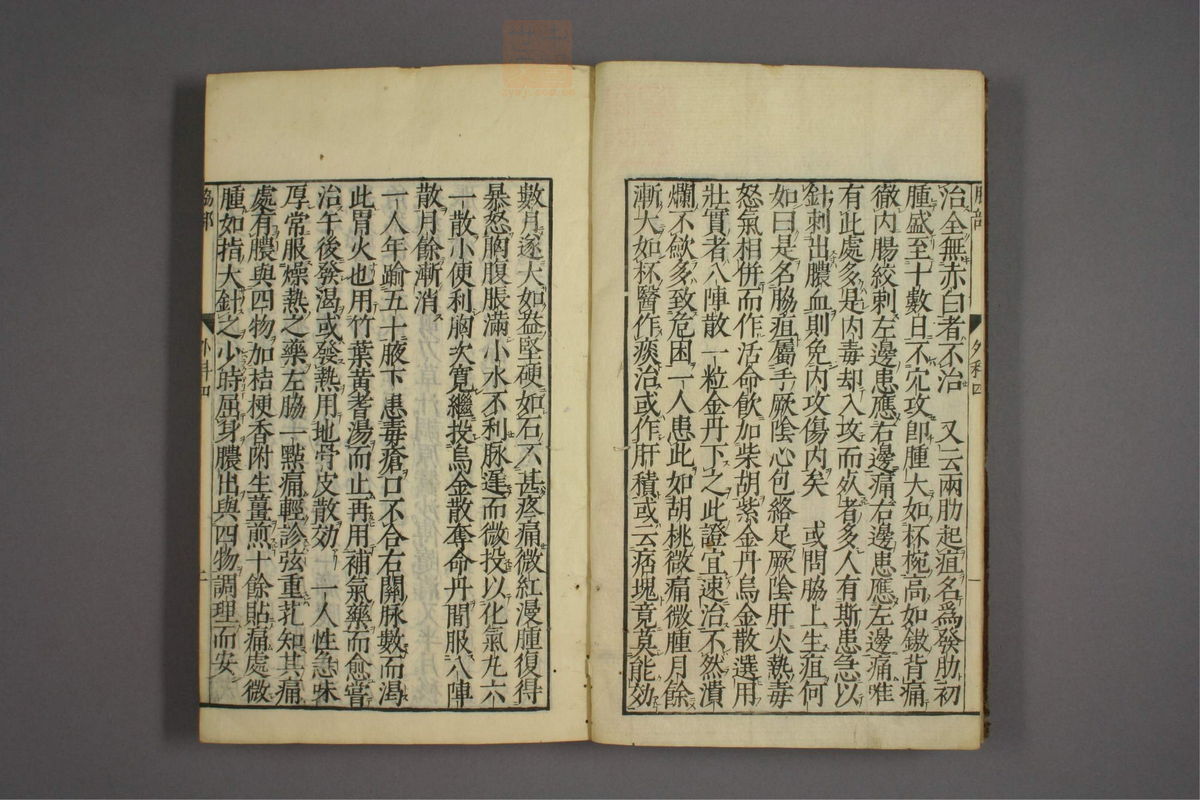 治全無赤白者不治　又云兩肋起疽名爲發肋初
腫盛至十數日不穴攻卽腫大如杯椀高如鏊背痛
徹內腸絞刺左邊患應右邊痛右邊患應左邊痛唯
有此處多是內毒却入攻而𣦸者多人有斯患急以
針刺出膿血則免內攻傷內矣　或問脇上生疽何
如曰是名脇疽屬手厥陰心包絡足厥陰肝火熱毒
怒氣相併而作活命飲加柴胡紫金丹烏金散選用
壯實者八陣散一粒金丹下之此證宜速治不然潰
爛不斂多致危困一人患此如胡桃微痛微腫月餘
漸大如杯醫作痰治或作肝積或云痞塊竟莫能効
外科四
一
數月逐大如盎堅硬如石不甚疼痛微紅漫腫復得
暴怒胸腹脹滿小水不利脉遲而微投以化氣丸六
一散小便利胸次寬繼投烏金散奪命丹間服八陣
散月餘漸消
一人年踰五十腋下患毒瘡口不合右關脉數而渴
此胃火也用竹葉黃耆湯而止再用補氣藥而愈嘗
治午後發渴或發熱用地骨皮散効　一人性急味
厚常服燥熱之藥左脇一點痛輕診弦重芤知其痛
處有膿與四物加桔梗香附生薑煎十餘貼痛處微
腫如指大針之少時屈身膿出與四物調理而安
脇部
外科四